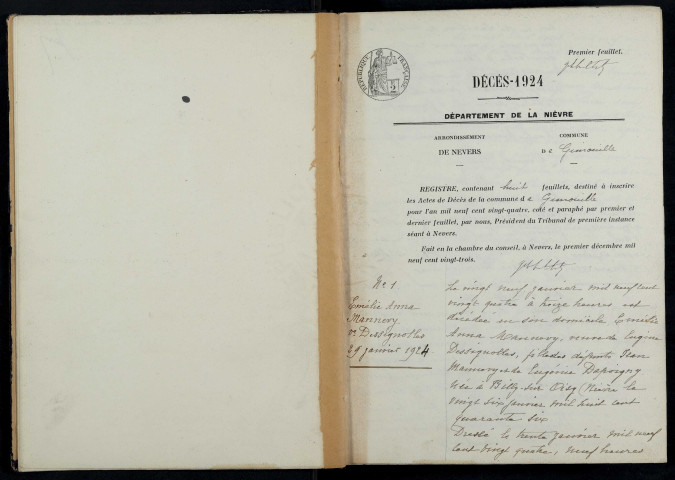 Premier feuillet.
RÉPUBLIQUE FRANÇAISE
DÉCÈS-1924
DÉPARTEMENT DE LA NIÈVRE
ARRONDISSEMENT
DE NEVERS
COMMUNE
DE Gimouille
REGISTRE, contenant huit feuillets, destiné à inscrire
les Actes de Décès de la commune de Gimouille
pour l'an mil neuf cent vingt-quatre, coté et paraphé par premier et
dernier feuillet, par nous, Président du Tribunal de première instance
séant à Nevers.
Fait en la chambre du conseil, à Nevers, le premier décembre mil
neuf cent vingt-trois.
No 1
Emélie Anna
Mannevy
Vve Dessignolles
29 janvier 1924
Le vingt neuf janvier mil neuf cent
vingt quatre à treize heures est
décédée en son domicile Emélie
Anna Mannevy, veuve de Eugène
Dessignolles, fille des défunts Jean
Mannevy et de Eugénie
Née à Billy-sur-Oisy (Nièvre) le
vingt six janvier mil huit cent
quarante six
Dressé le trente janvier mil neuf
cent vingt quatre, neuf heures